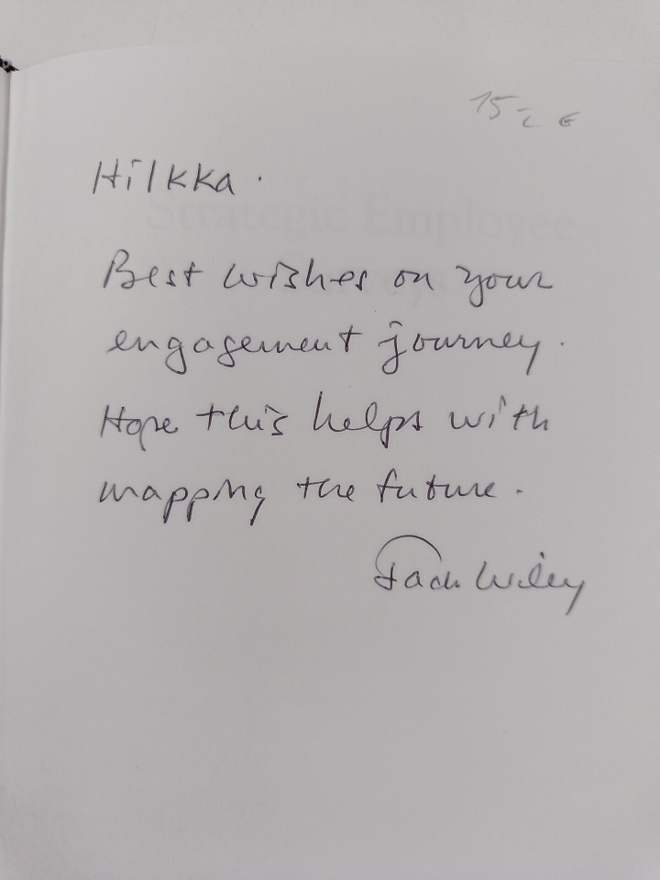 15,- €
Hilkka.
Strategic Employee
Surveys
Best wishes on your
engagement journey.
Hope this helps with
mapping the future.
Jack Wiley